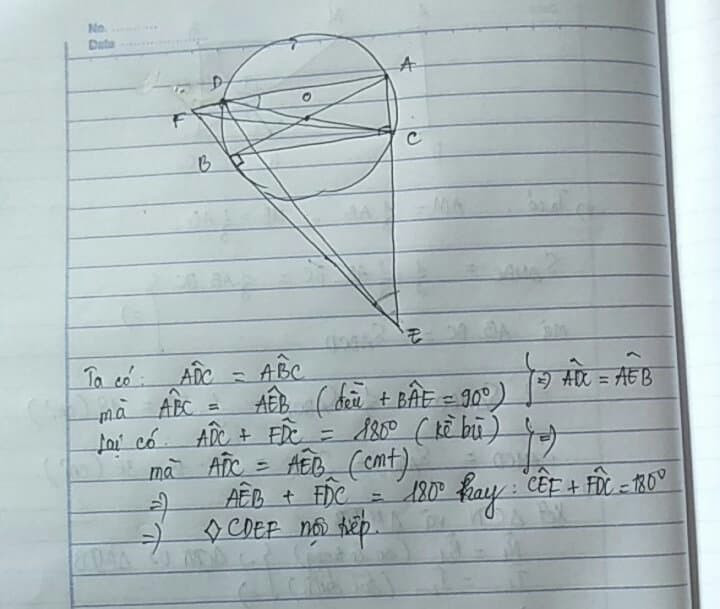 No.
Date
A
D
O
F
C
B
E
Ta có: ADĈ = AB̂C
mà AB̂C = AÊB (đều + BÂE = 90°) } => AD̂C = AÊB
Lại có. AD̂C + FD̂C = 180° (kề bù) } =>
mà AD̂C = AÊB (cmt)
=> AÊB + FD̂C = 180° hay: CÊF + FD̂C = 180°
=> ◇CDEF nội tiếp.